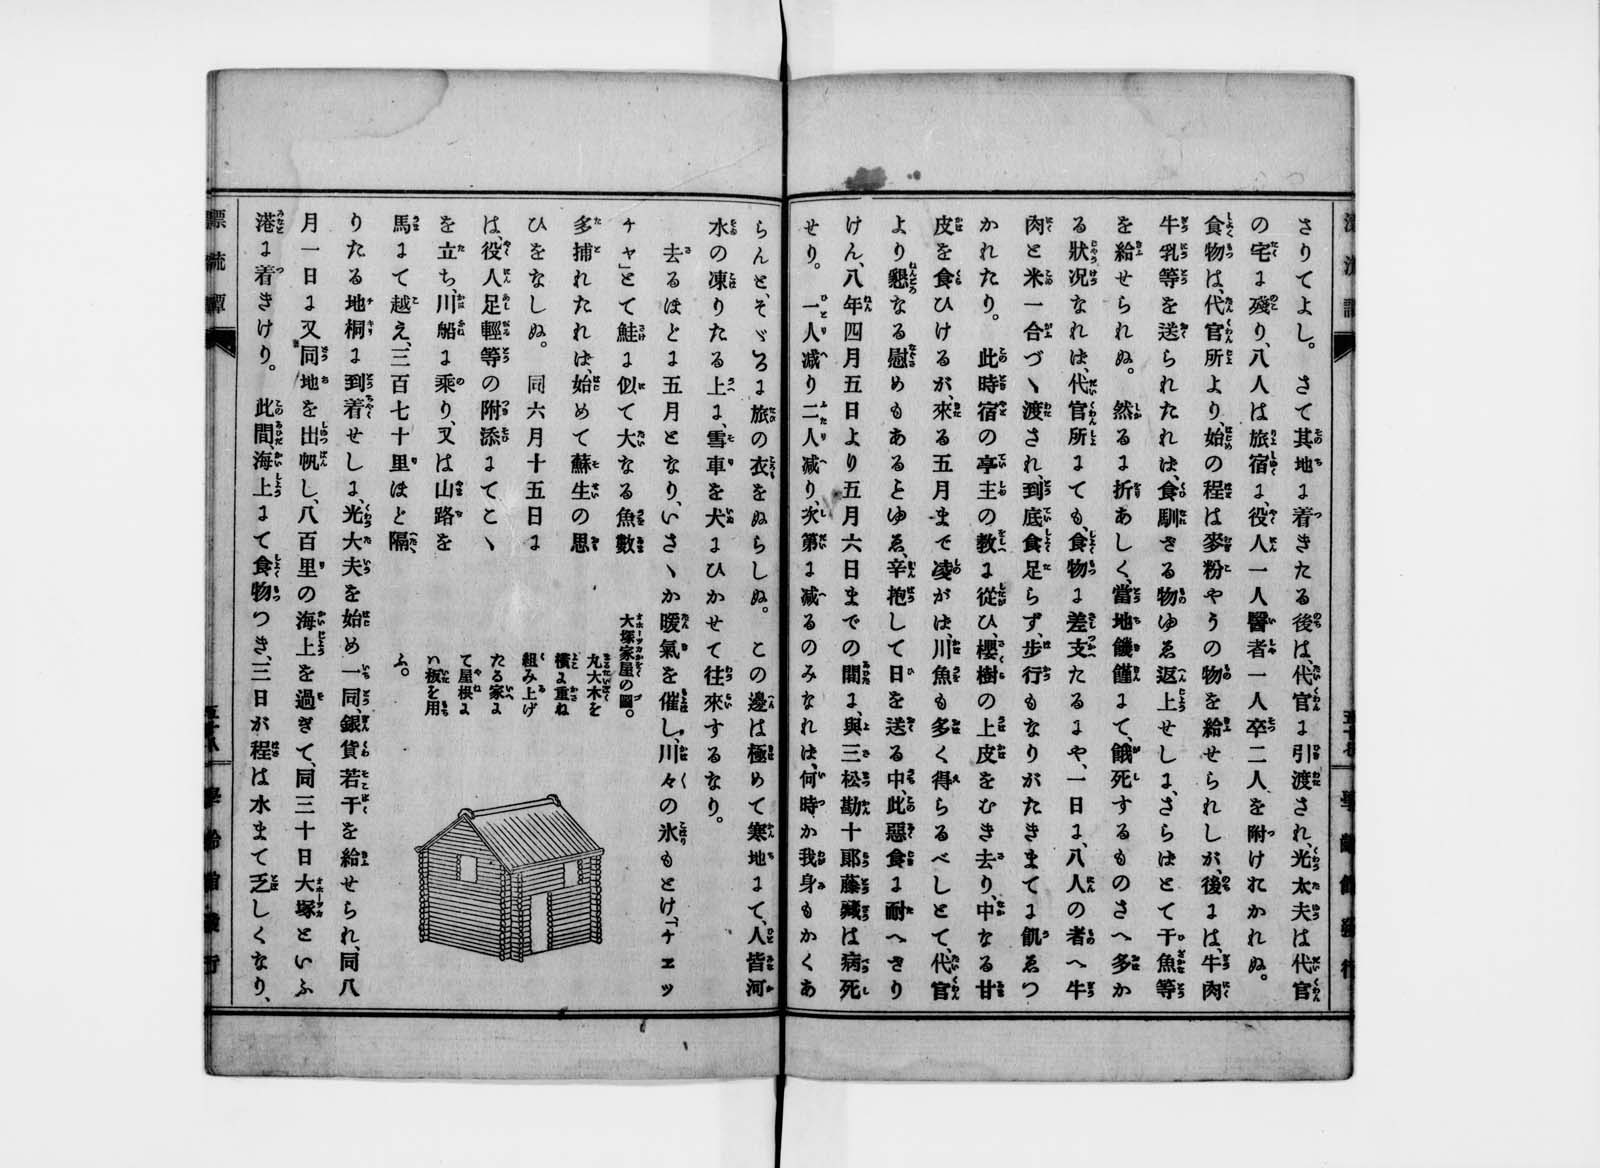 さりてよし。さて其地に着きたる後は、代官に引渡され、光太夫は代官
の宅に殘り、八人は旅宿に、役人一人醫者一人卒二人を附けれかれぬ。
食物は、代官所より、始の程は麥粉やうの物を給せられしが、後には、牛肉
牛乳等を送られたれは、食馴ざる物ゆゑ返上せしに、さらはとて干魚等
を給せられぬ。然るに折あしく、當地饑饉にて、餓死するものさへ多か
る狀况なれは、代官所にても、食物に差支たるにや、一日に、八人の者へ牛
肉と米一合づヽ渡され、到底食足らず、步行もなりがたきまてに飢ゑつ
かれたり。此時宿の亭主の敎に從ひ、櫻樹の上皮をむき去り、中なる甘
皮を食ひけるが、來る五月まで凌がは、川魚も多く得らるべしとて、代官
より懇なる慰めもあるとゆゑ、辛抱して日を送る中、此惡食に耐へざり
けん、八年四月五日より五月六日までの間に、與三松勘十郞藤藏は病死
せり。一人減り二人減り、次第に減るのみなれは、何時か我身もかくあ
らんと、そヾろに旅の衣をぬらしぬ。この邊は極めて寒地にて、人皆河
水の凍りたる上に、雪車を犬にひかせて往來するなり。
去るほとに五月となり、いさヽか暖氣を催し、川々の氷もとけ、「チェッ
チャ」とて鮭に似て大なる魚數
多捕れたれは、始めて蘇生の思
ひをなしぬ。同六月十五日に
は、役人足輕等の附添にて、こヽ
を立ち、川船に乘り、又は山路を
馬にて越え、三百七十里ほと隔
大塚家屋の圖。
丸大木を
横に重ね
組み上げ
たる家に
て屋根に
い板を用
ふ。
りたる地桐に到着せしに、光大夫を始め一同、銀貨若干を給せられ、同八
月一日に又同地を出帆し、八百里の海上を過ぎて、同三十日大塚といふ
港に着きけり。此間、海上にて食物つき、三日が程は水まて乏しくなり、
漂流譚
五十八